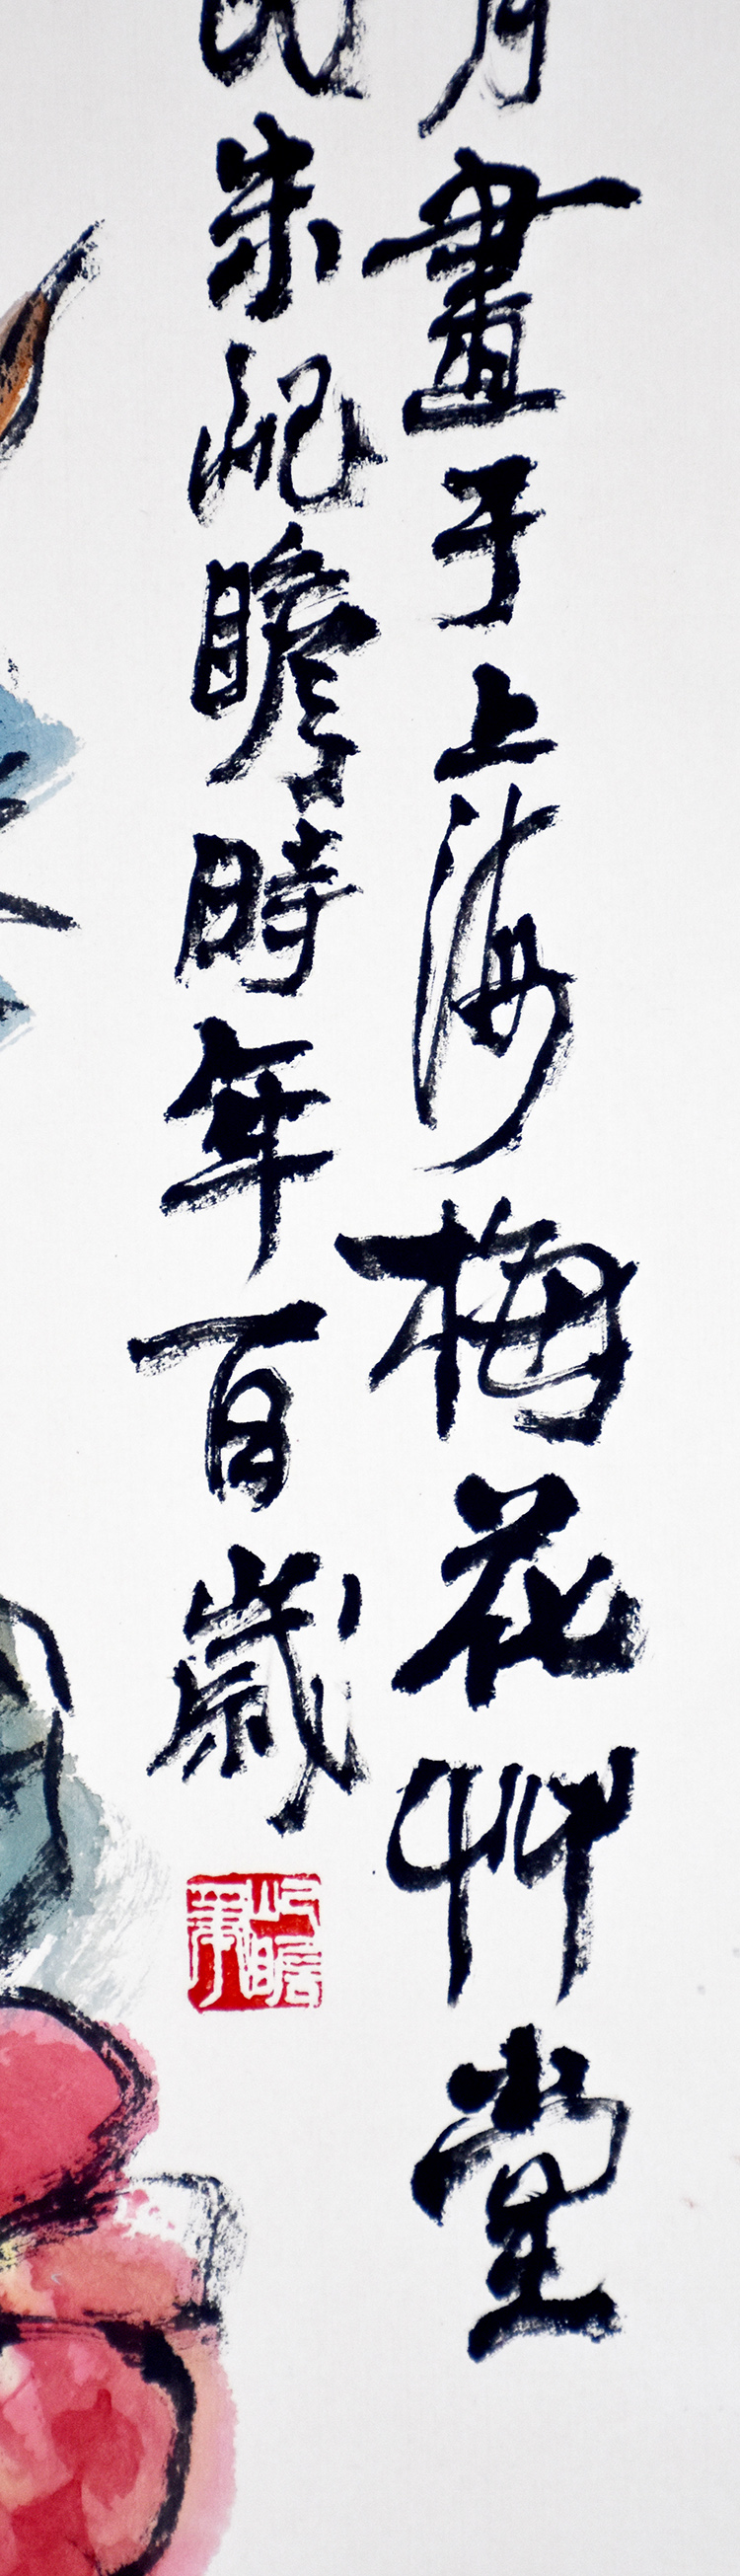 月畫于上海梅花艸堂
朱屺瞻時年百歲
屺瞻